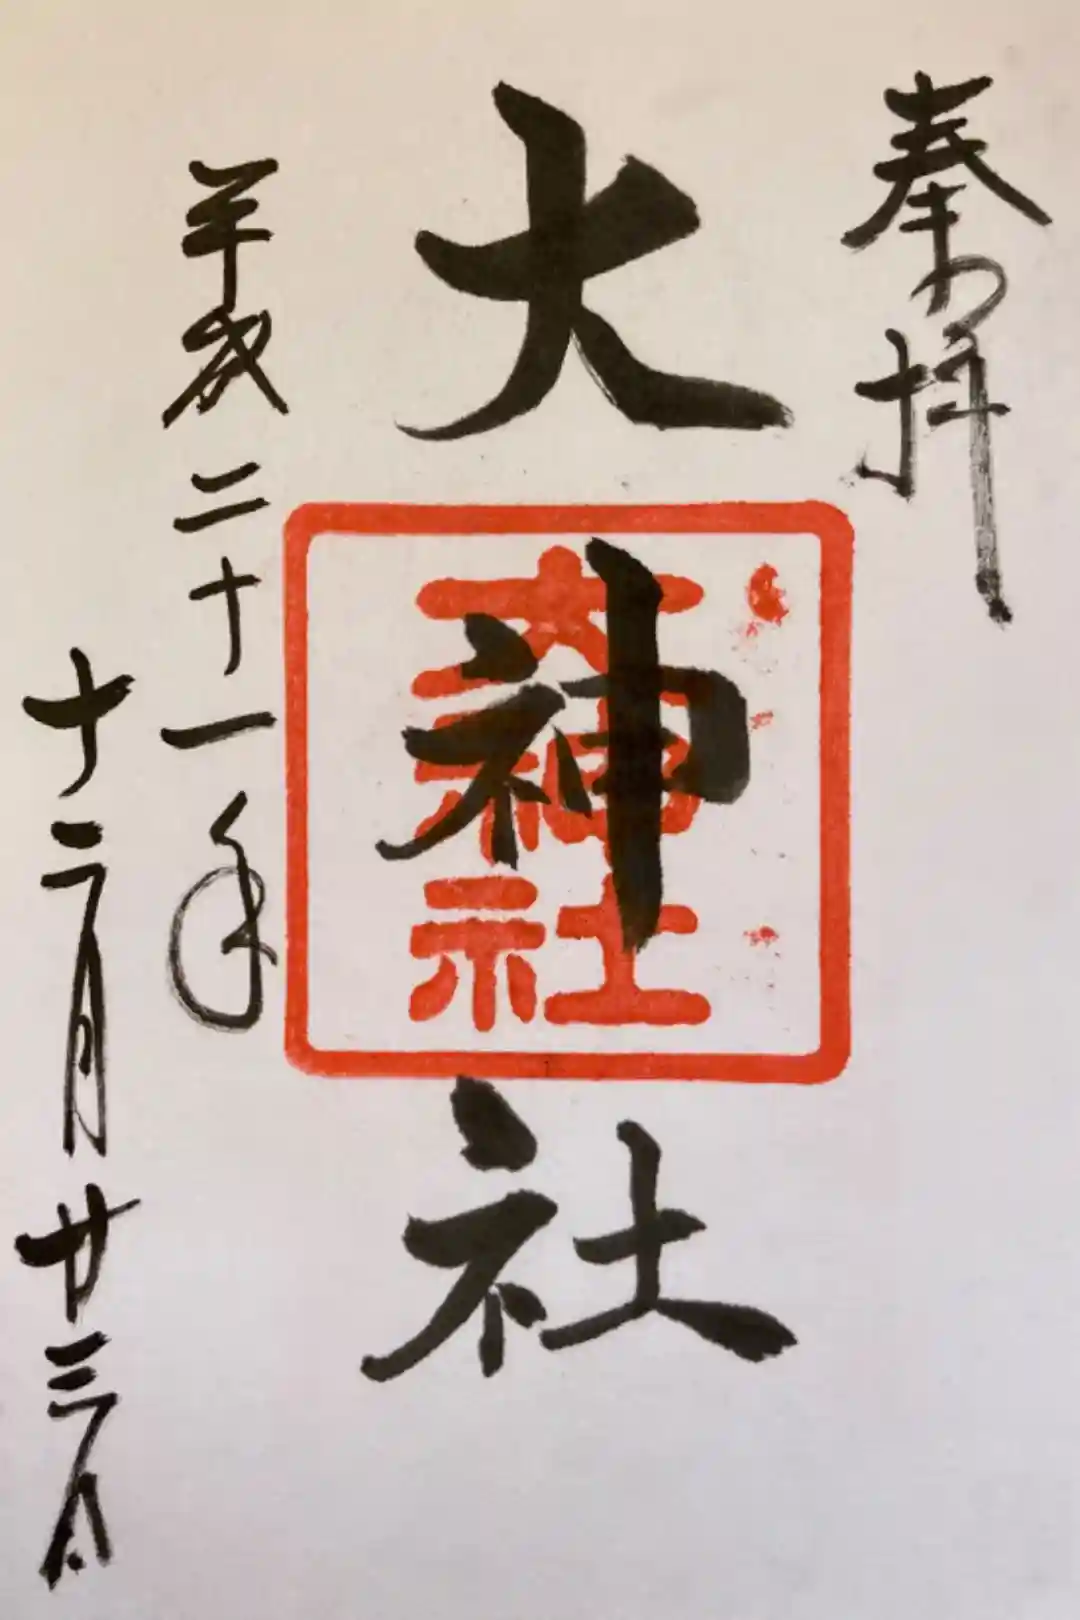 奉拝
大神社
大神神社
平成二十一年
十二月廿三日